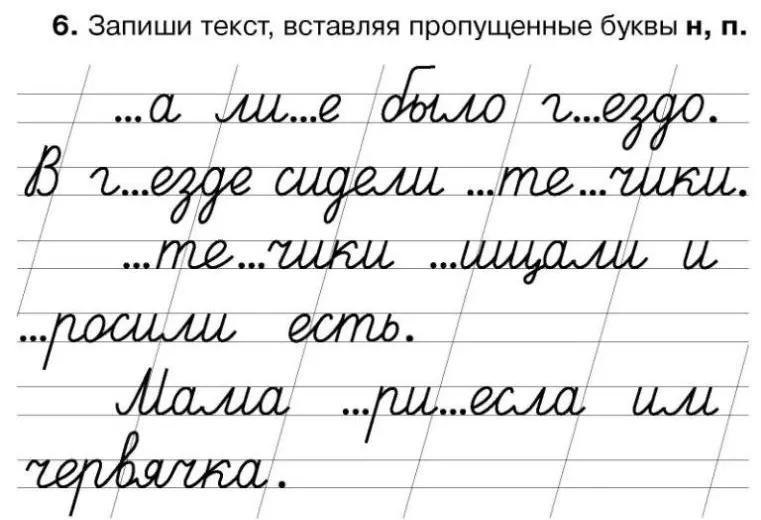 6. Запиши текст, вставляя пропущенные буквы н, п.
...а ли...е было г...ездо.
В г...езде сидели ...те...чики.
...те...чики ...ищали и
...росили есть.
Мама ...ри...есла им
червячка.